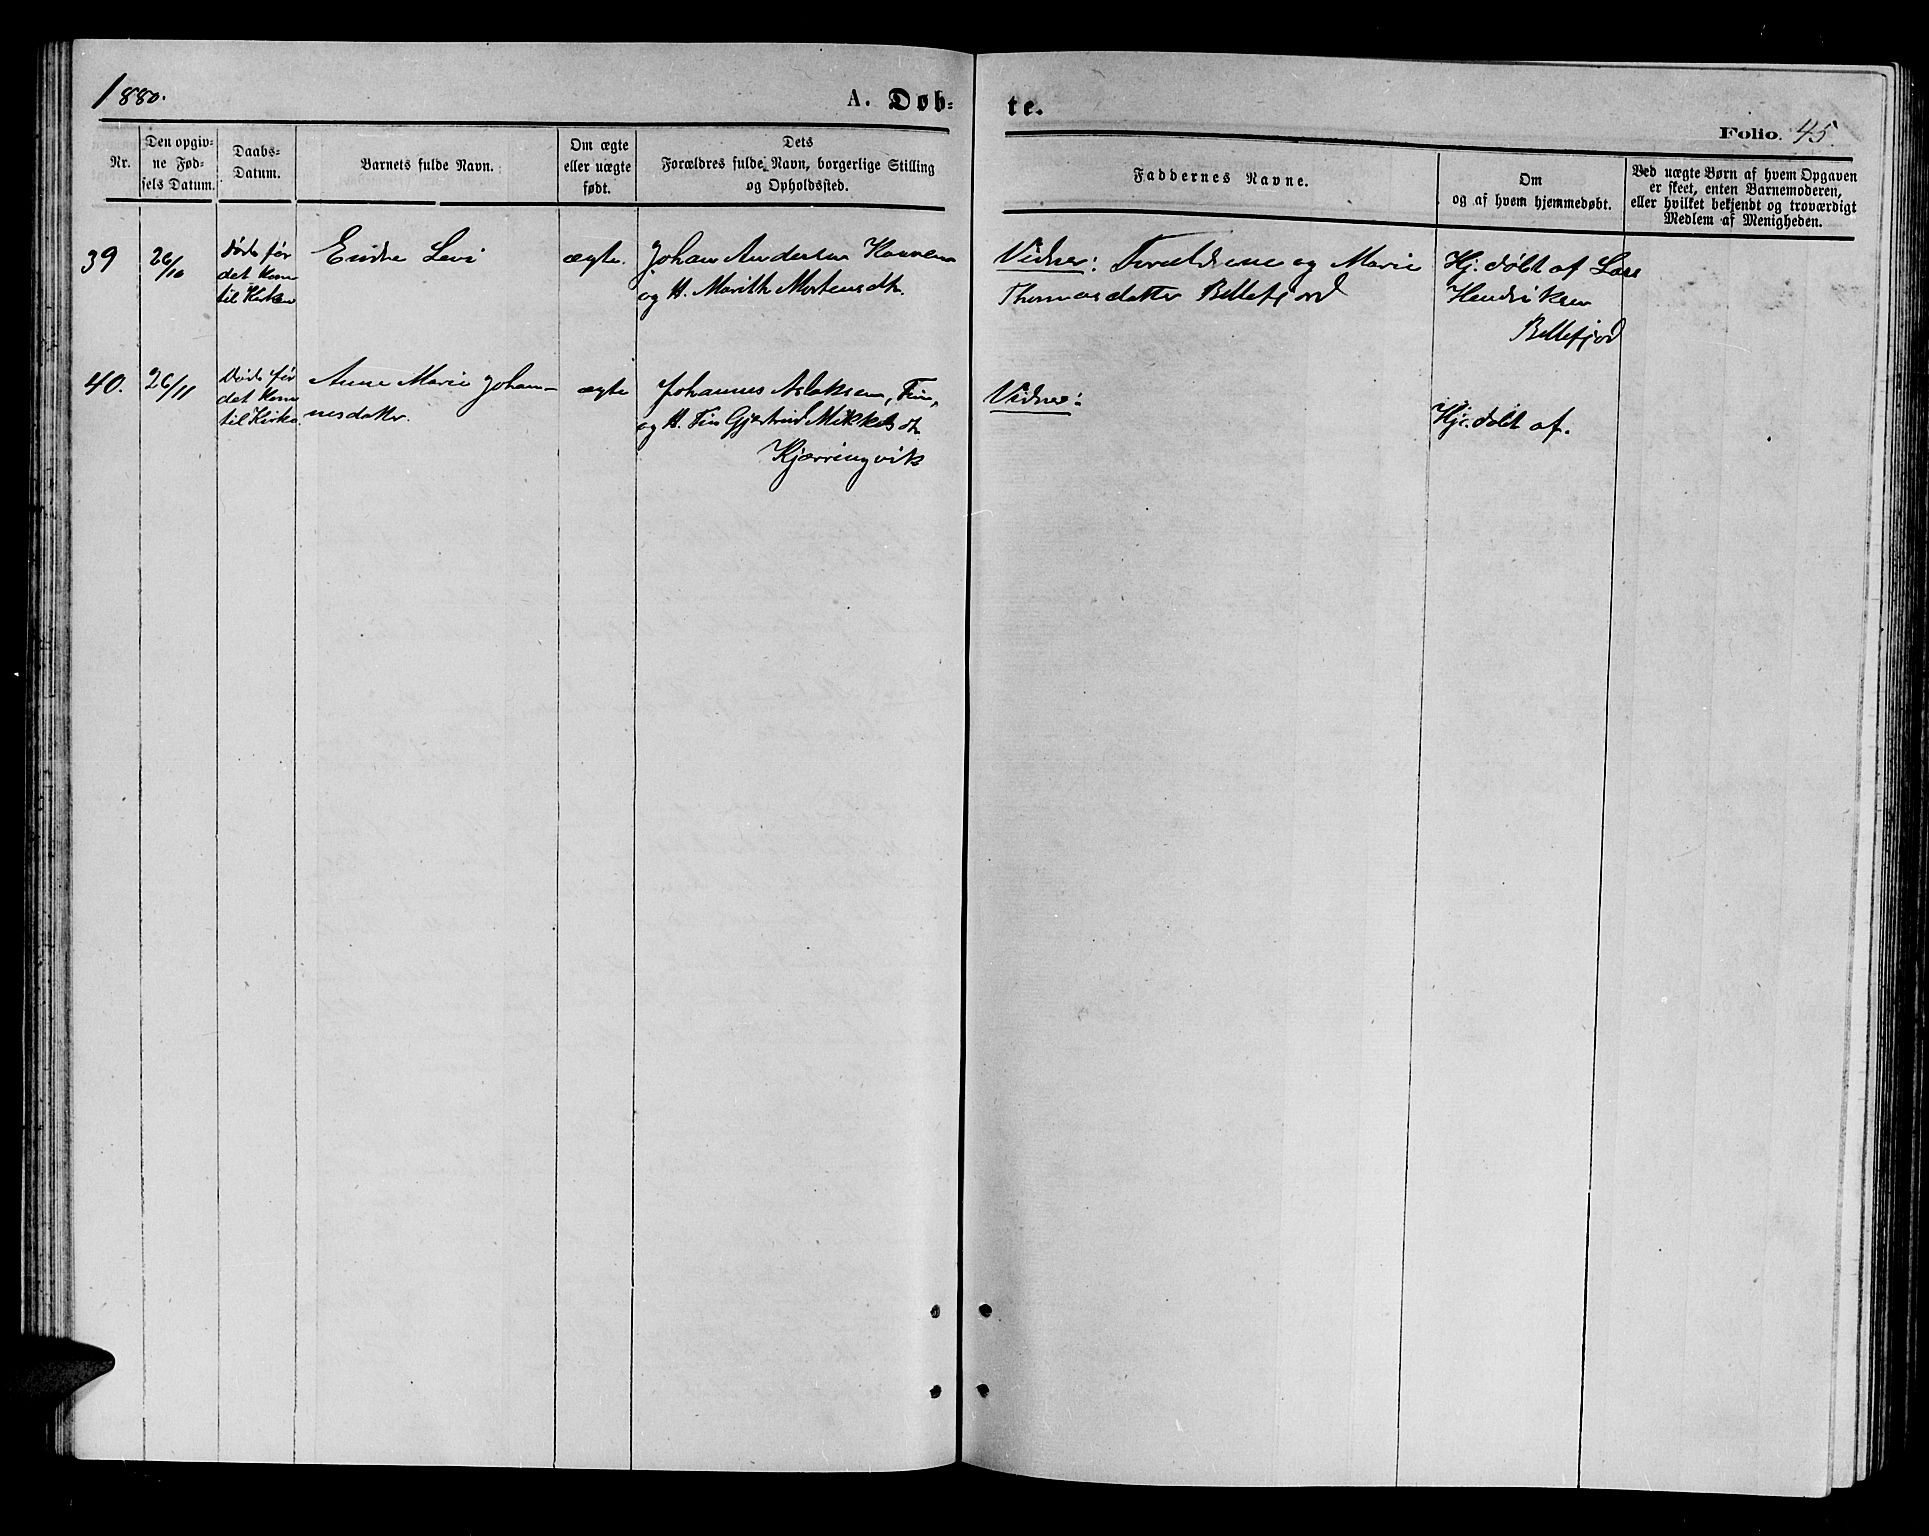 1880.
A. Døb-
te.
Folio. 45.
Nr.
Den opgiv-
ne Fød-
sels Datum.
Daabs-
Datum.
Barnets fulde Navn.
Om ægte
eller uægte
født.
Dets
Forældres fulde Navn, borgerlige Stilling
og Opholdssted.
Faddernes Navne.
Om
og af hvem hjemmedøbt.
Ved uægte Børn af hvem Opgaven
er skeet, enten Barnemoderen,
eller hvilket bekjendt og troværdigt
Medlem af Menigheden.
39
26/10
døde før
det kom
til Kirken
Endre Levi
ægte.
Johan Andersen
og H. Marith Mortensdtr.
Vidner: Forældrene og Marie
Thomasdatter Billefjord
Hj. døbt af Lars
Hendriksen
Billefjord
40.
26/11
Døde før
det kom
til Kirke
Anne Marie Johan-
nesdatter.
ægte
Johannes Aslaksen, Fin,
og H. Fin Gjertrud Mikkelsdtr.
Kjærringvik
Vidner:
Hje. døbt af.